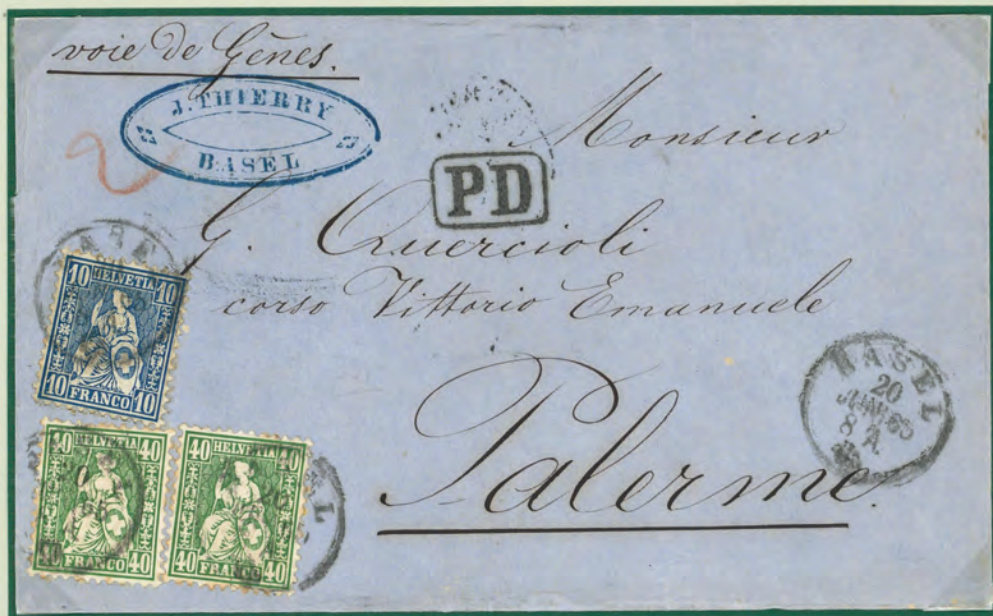 voie de Gênes.
J. THIERRY
BASEL
2
PD
Monsieur
G. Quercioli
corso Vittorio Emanuele
Palerme
BASEL
20
8 A.
BASE
10 HELVETIA 10
10 FRANCO 10
40 HELVETIA 40
40 FRANCO 40
40 HELVETIA 40
40 FRANCO 40